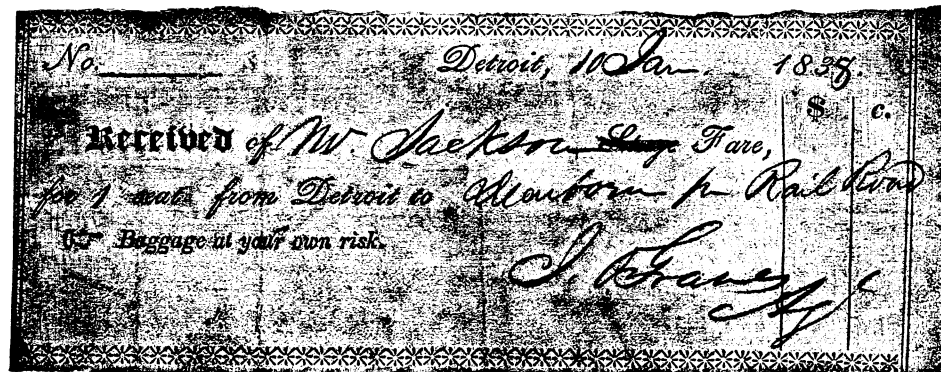 No. Detroit, 10 Jan. 1838.
$ c.
Received of Mr. Jackson Stage Fare,
for 1 seat from Detroit to Dearborn pr Rail Road
Baggage at your own risk.
J. Graves Agt